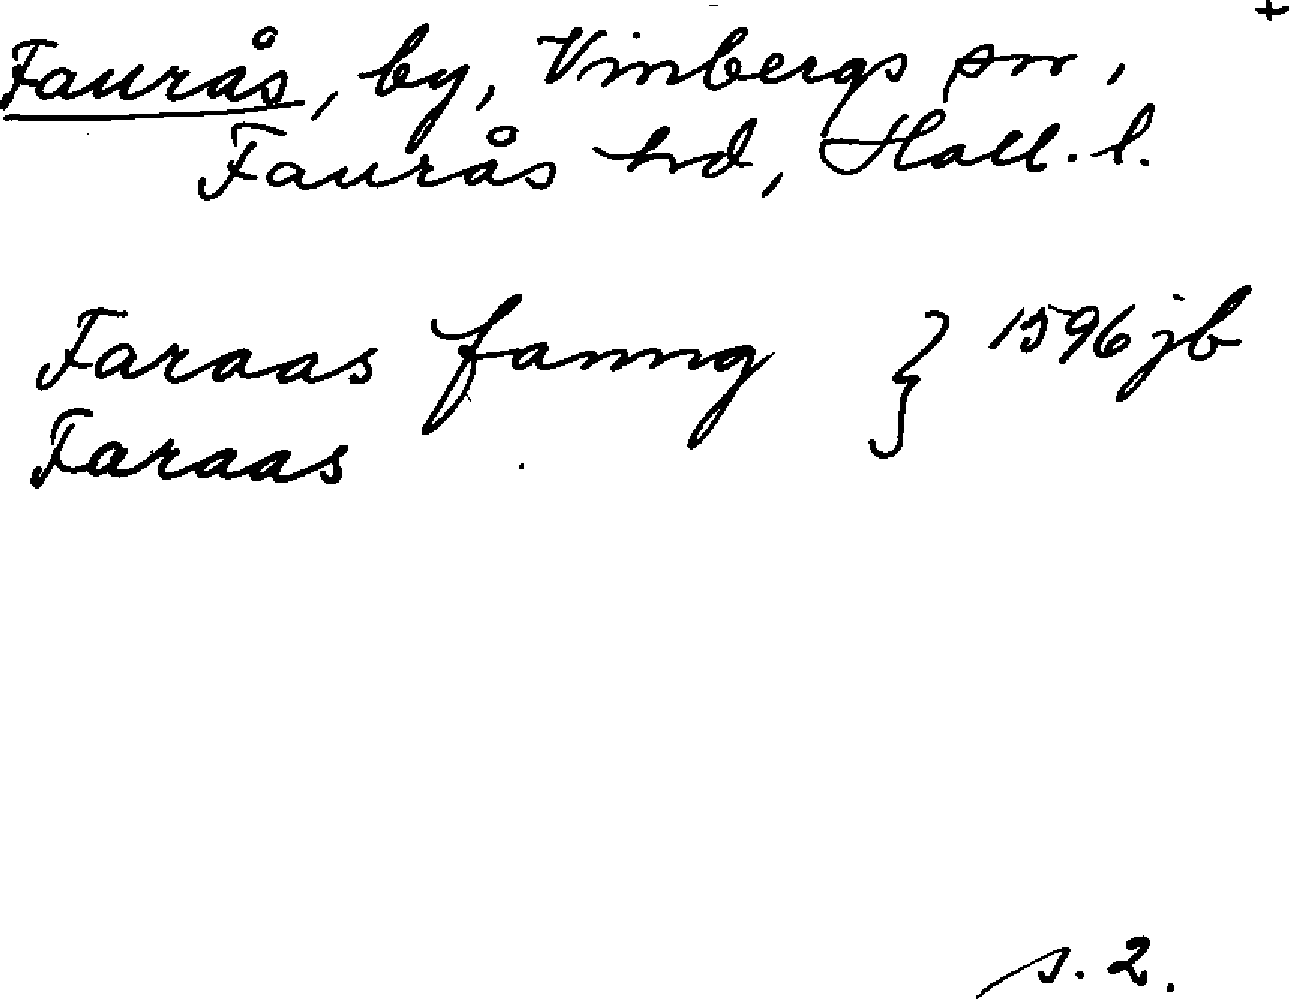 +
Faurås, by, Vinbergs sn,
Faurås hd, Hall. l.
Faraas fanng } 1596 jb
Faraas
s. 2.